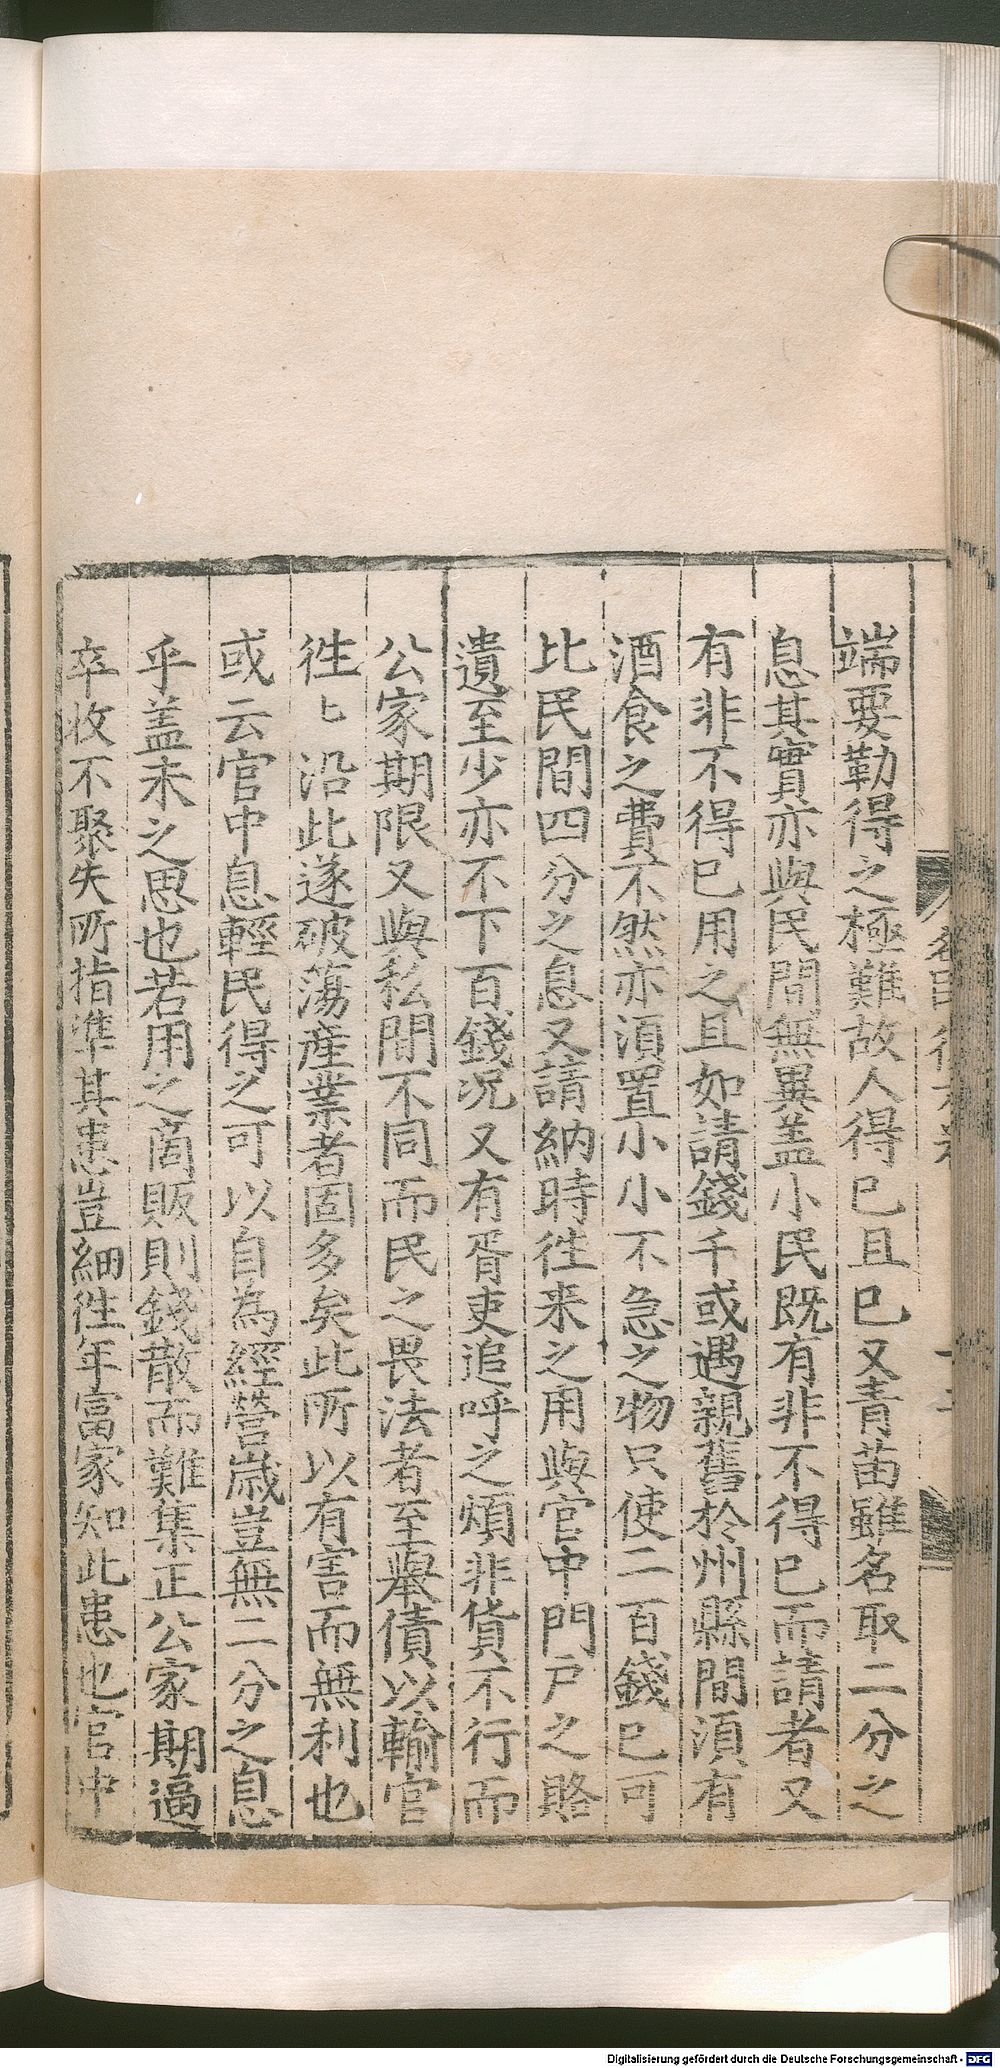 端要勒得之極難故人得已且已又青苗雖名取二分之
息其實亦與民間無異盖小民既有非不得已而請者又
有非不得已用之且如請錢千或遇親舊於州縣間須有
酒食之費不然亦須置小小不急之物只使二百錢已可
比民間四分之息又請納時徃来之用與官中門戶之賂
遺至少亦不下百錢况又有胥吏追呼之煩非貨不行而
公家期限又與私間不同而民之畏法者至舉債以輸官
徃々沿此遂破蕩産業者固多矣此所以有害而無利也
或云官中息輕民得之可以自為經營歳豈無二分之息
乎盖未之思也若用之商販則錢散而難集正公家期逼
卒收不聚失所指準其患豈細徃年富家知此患也官中
Digitalisierung gefördert durch die Deutsche Forschungsgemeinschaft - DFG